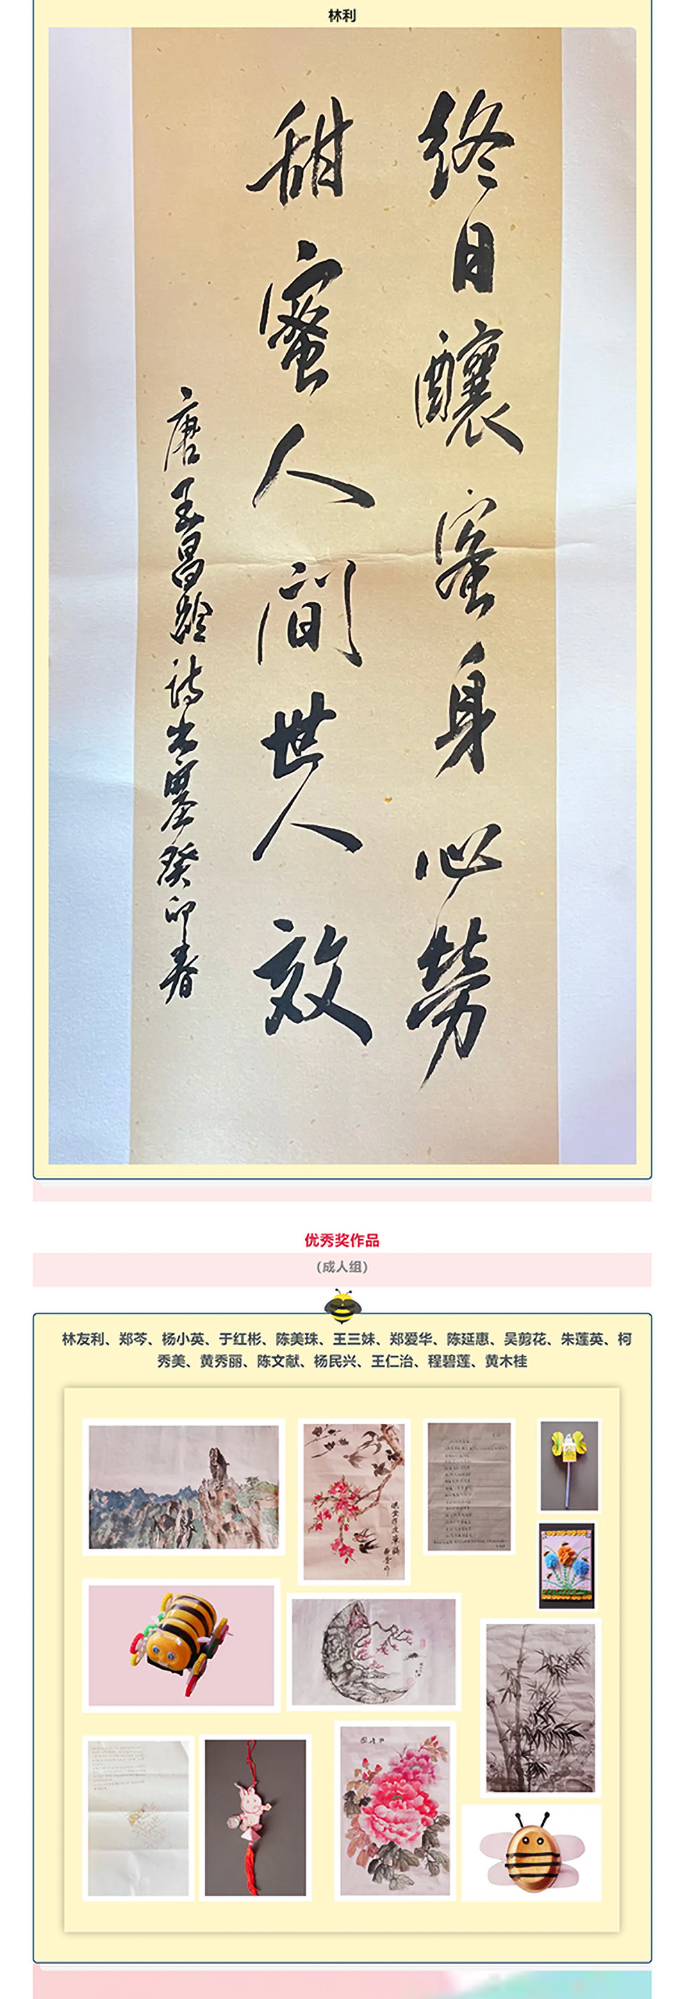 林利
终日釀蜜身心劳
甜蜜人间世人效
唐王昌龄诗出塞癸卯春
优秀奖作品
(成人组)
林友利、郑芩、杨小英、于红彬、陈美珠、王三妹、郑爱华、陈延惠、吴剪花、朱莲英、柯
秀美、黄秀丽、陈文献、杨民兴、王仁治、程碧莲、黄木桂